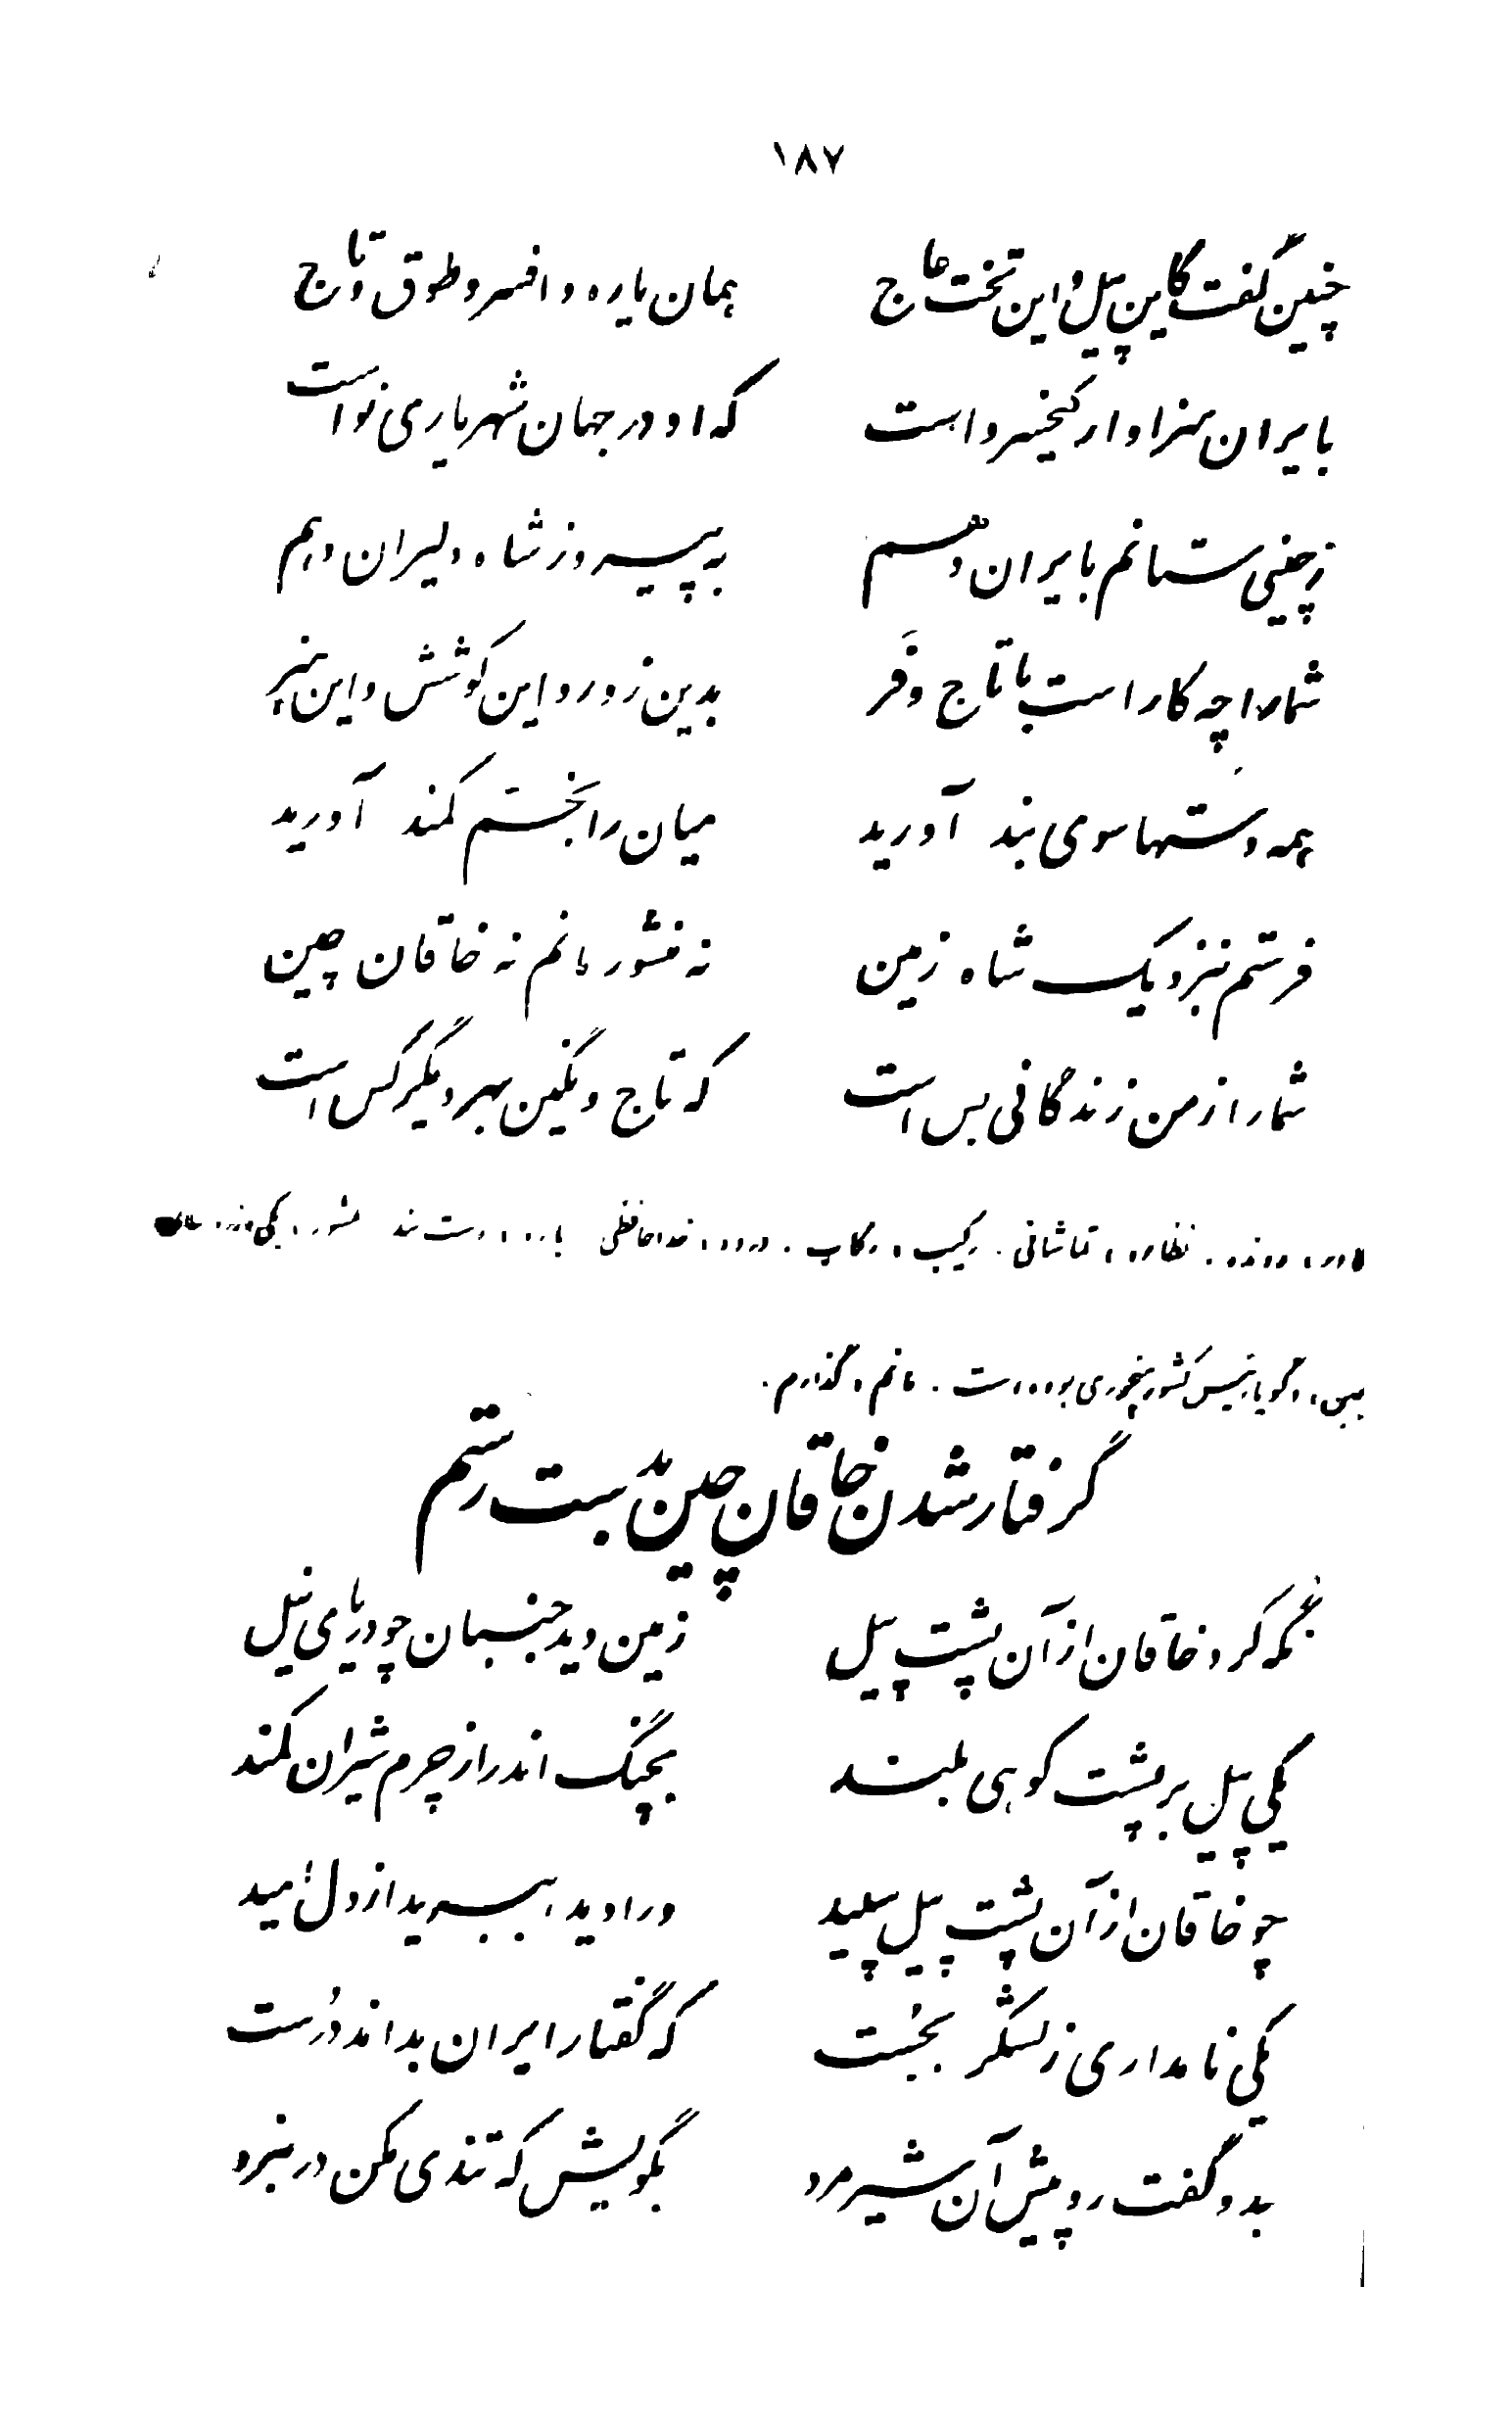 ۱۸۷
چنین گفت کاین پیل و این تخت عاج همان یاره و افسر و طوق و تاج
بایران سزاوار کیخسرو است که او در جهان شهریاری نو است
ز چینی ستانم بایران دهم به پیروز شاه دلیران دهم
شما را چه کار است با تاج و فر بدین زور و این کوشش و این هنر
همه دستها سوی بند آورید میان را بخم کمند آورید
فرستم بنزدیک شاه زمین نه منشور مانم نه خاقان چین
شما را ز من زندگانی بس است که تاج و نگین بهر دیگر کس است
نظاره، تماشائی. رکیب، رکاب. درود، خداحافظی یاره، دست بند منشور، یکی
چین، گویا رئیس کشور بوده است. مانم، گذارم.
گرفتار شدن خاقان چین بدست رستم
نگه کرد خاقان از آن پشت پیل زمین دید جنبان چو دریای نیل
یکی پیل بر پشت کوهی بلند بچنگ اندر از چرم شیران کمند
چو خاقان از آن پشت پیل سپید ورا دید، ببرید از دل امید
یکی نامداری ز لشکر بجست که گفتار ایران بداند درست
بدو گفت رو پیش آن شیر مرد بگویش که تندی مکن در نبرد